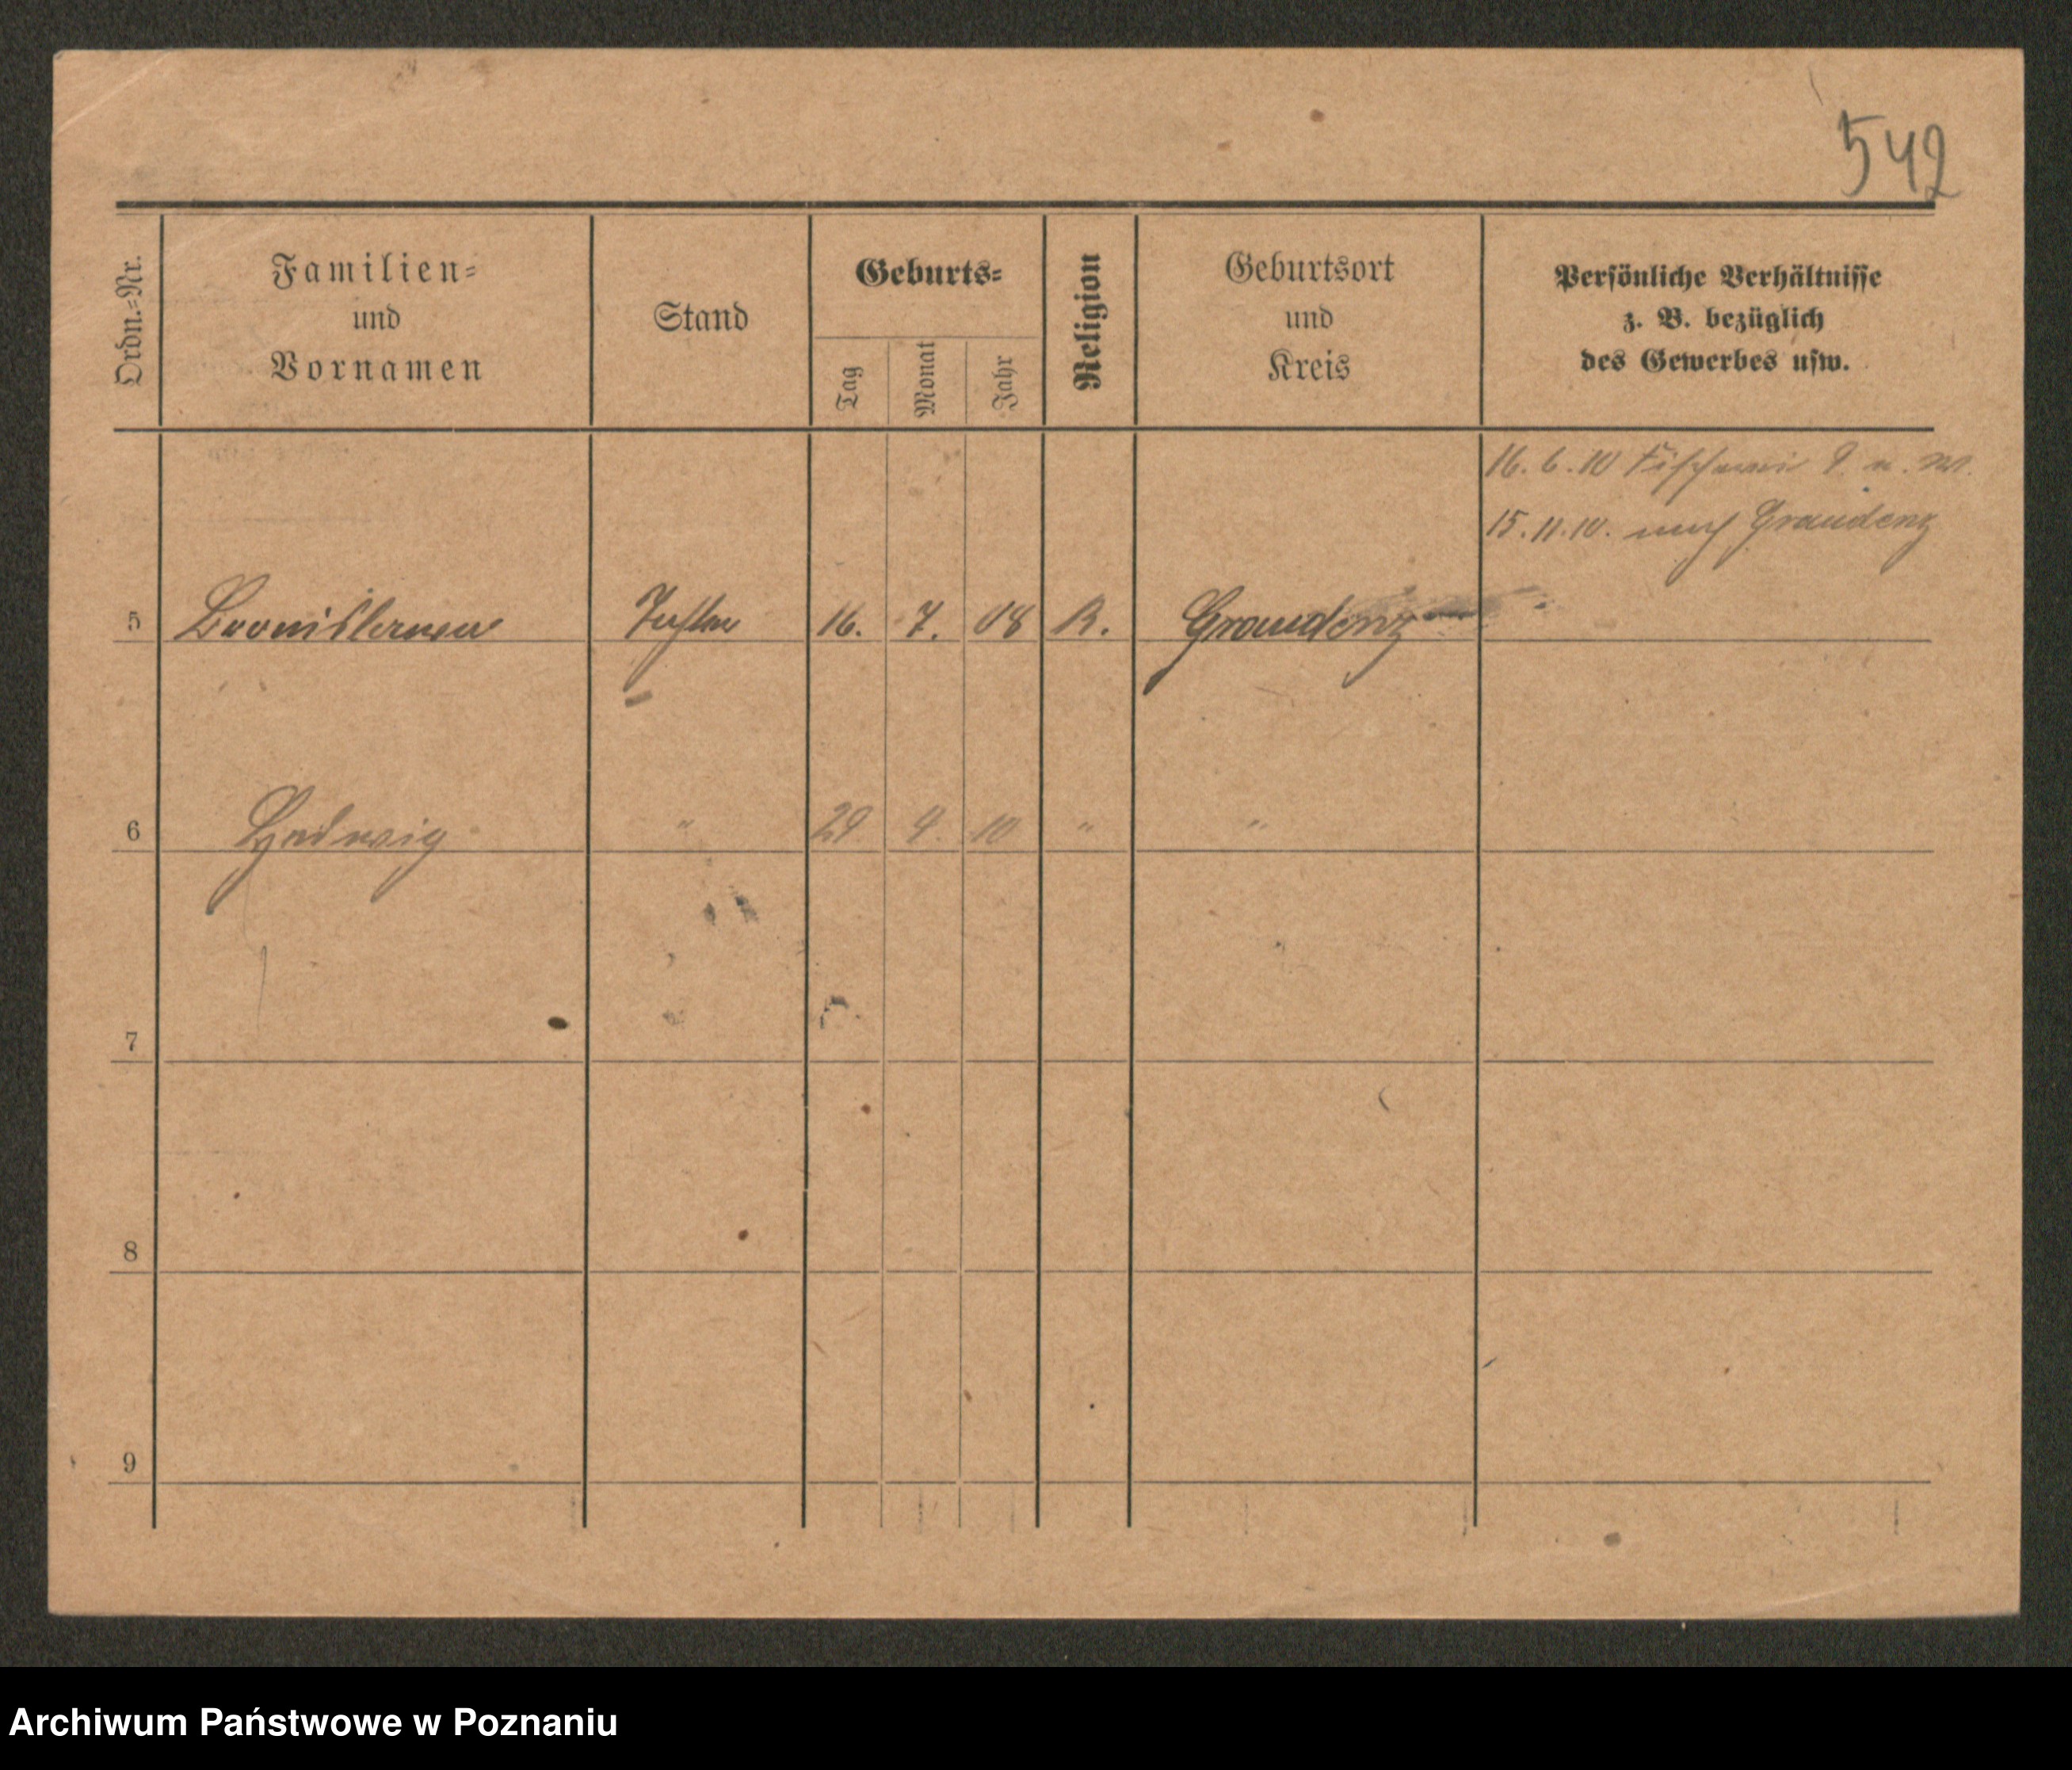 542
Ordn.=Nr.
Familien=
und
Vornamen
Stand
Geburts=
Tag
Monat
Jahr
Religion
Geburtsort
und
Kreis
Persönliche Verhältnisse
z. B. bezüglich
des Gewerbes usw.
16. 6. 10
15. 11. 10. nach Graudenz
5 Tochter 16. 7. 08 R. Graudenz
6 Hedwig " 29 9. 10 " "
7
8
9
Archiwum Państwowe w Poznaniu